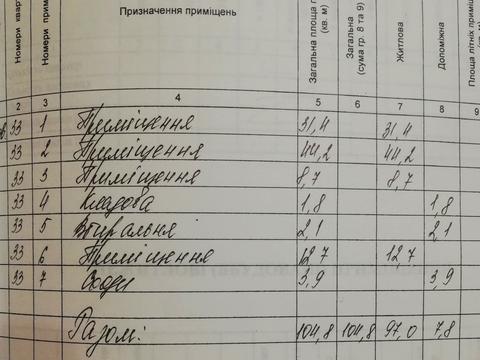 Номери
Номери
Призначення приміщень
Загальна площа
(кв. м)
Загальна
(сума гр. 8 та 9)
Житлова
Допоміжна
Площа літніх
2 3 4 5 6 7 8 9
33 1 Приміщення 31,4 31,4
33 2 Приміщення 44,2 44,2
33 3 Приміщення 8,7 8,7
33 4 Кладова 1,8 1,8
33 5 Вбиральня 2,1 2,1
33 6 Приміщення 12,7 12,7
33 7 Сходи 3,9 3,9
Разом: 104,8 104,8 97,0 7,8